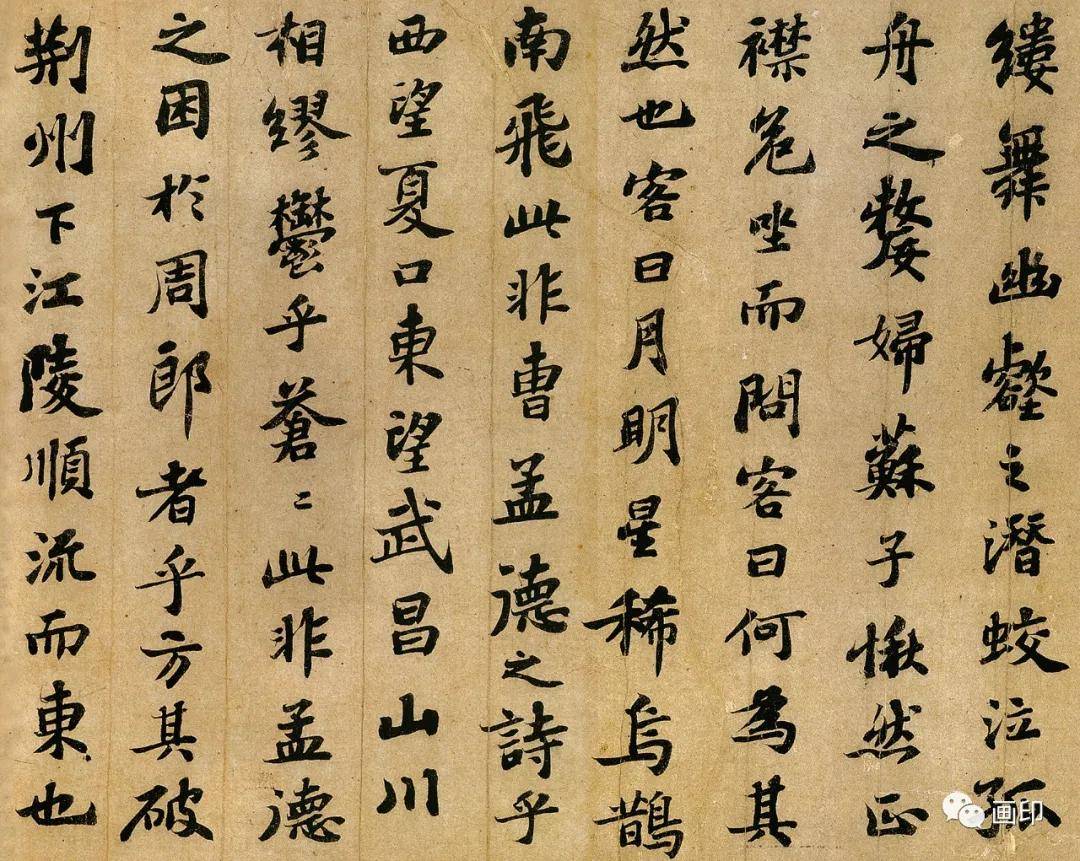 縷舞幽壑之潛蛟泣孤
舟之嫠婦蘇子愀然正
襟危坐而問客曰何為其
然也客曰月明星稀烏鵲
南飛此非曹孟德之詩乎
西望夏口東望武昌山川
相繆鬱乎蒼〻此非孟德
之困於周郎者乎方其破
荊州下江陵順流而東也
画印